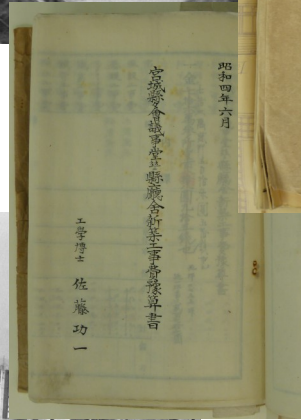 昭和四年六月
宮城縣會議事堂並縣廳舍新築工事費豫算書
工學博士 佐藤功一